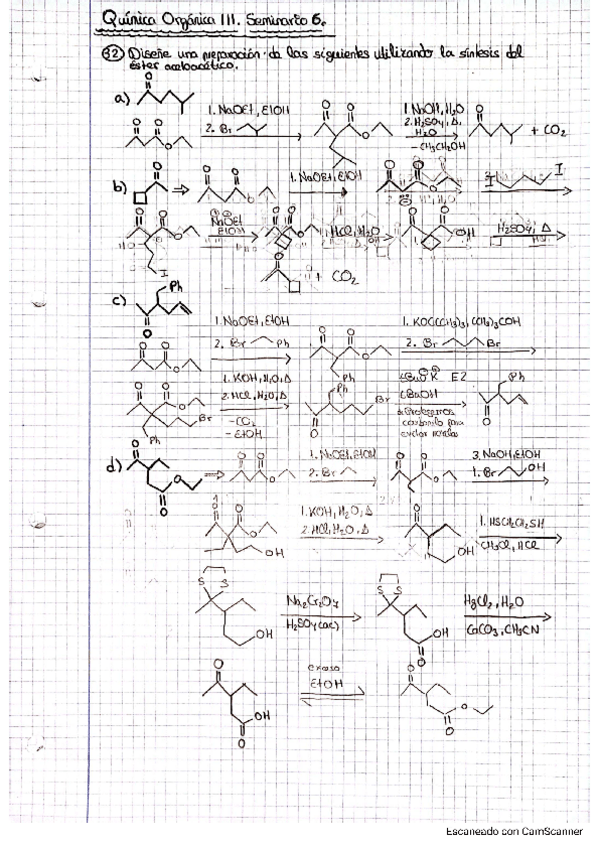 Química Orgánica III. Seminario 6.
32) Diseñe una preparación de las siguientes utilizando la síntesis del
éster acetoacético.
a)
1. NaOEt, EtOH
2. Br
1. NaOH, H₂O
2. H₂SO₄, Δ,
H₂O
- CH₃CH₂OH
+ CO₂
b)
1. NaOEt, EtOH
I
I
NaOEt
EtOH
HCl, H₂O
OH
H₂SO₄, Δ
I
+ CO₂
c)
Ph
1. NaOEt, EtOH
2. Br Ph
1. KOC(CH₃)₃, (CH₃)₃COH
2. Br Br
Ph
1. KOH, H₂O, Δ
2. HCl, H₂O, Δ
- CO₂
- EtOH
Br
Ph
Ph
Br
tBuO K E2
tBuOH
Ph
d)
1. NaOEt, EtOH
2. Br
3. NaOH, EtOH
1. Br OH
OH
1. KOH, H₂O, Δ
2. HCl, H₂O, Δ
OH
1. HSCH₂CH₂SH
CH₃Cl, HCl
S S
OH
Na₂Cr₂O₇
H₂SO₄ (ac)
S S
OH
O
HgCl₂, H₂O
CaCO₃, CH₃CN
O
OH
O
exceso
EtOH
O
O
O
Escaneado con CamScanner